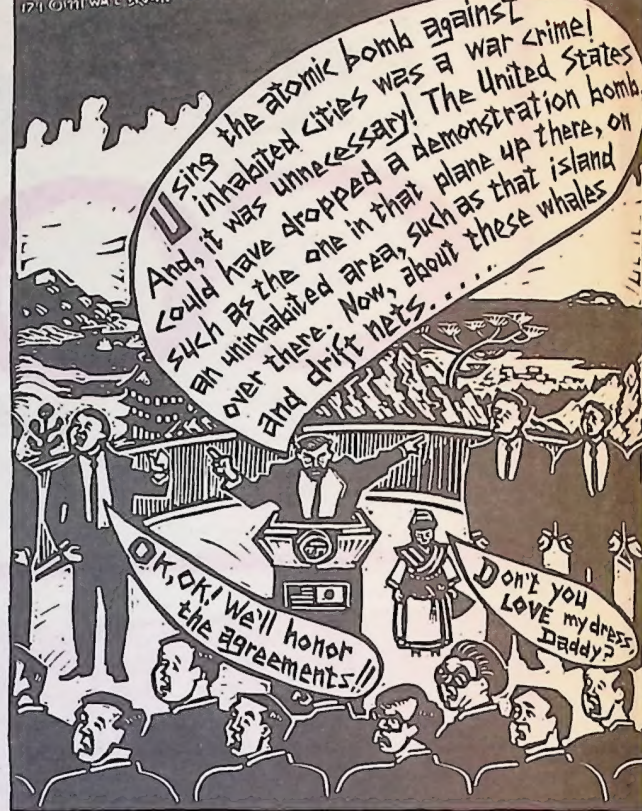 Using the atomic bomb against
inhabited cities was a war crime!
And, it was unnecessary! The United States
could have dropped a demonstration bomb,
such as the one in that plane up there, on
an uninhabited area, such as that island
over there. Now, about these whales
and drift nets.....
OK, OK! We'll honor
the agreements!!
Don't you
LOVE my dress,
Daddy?